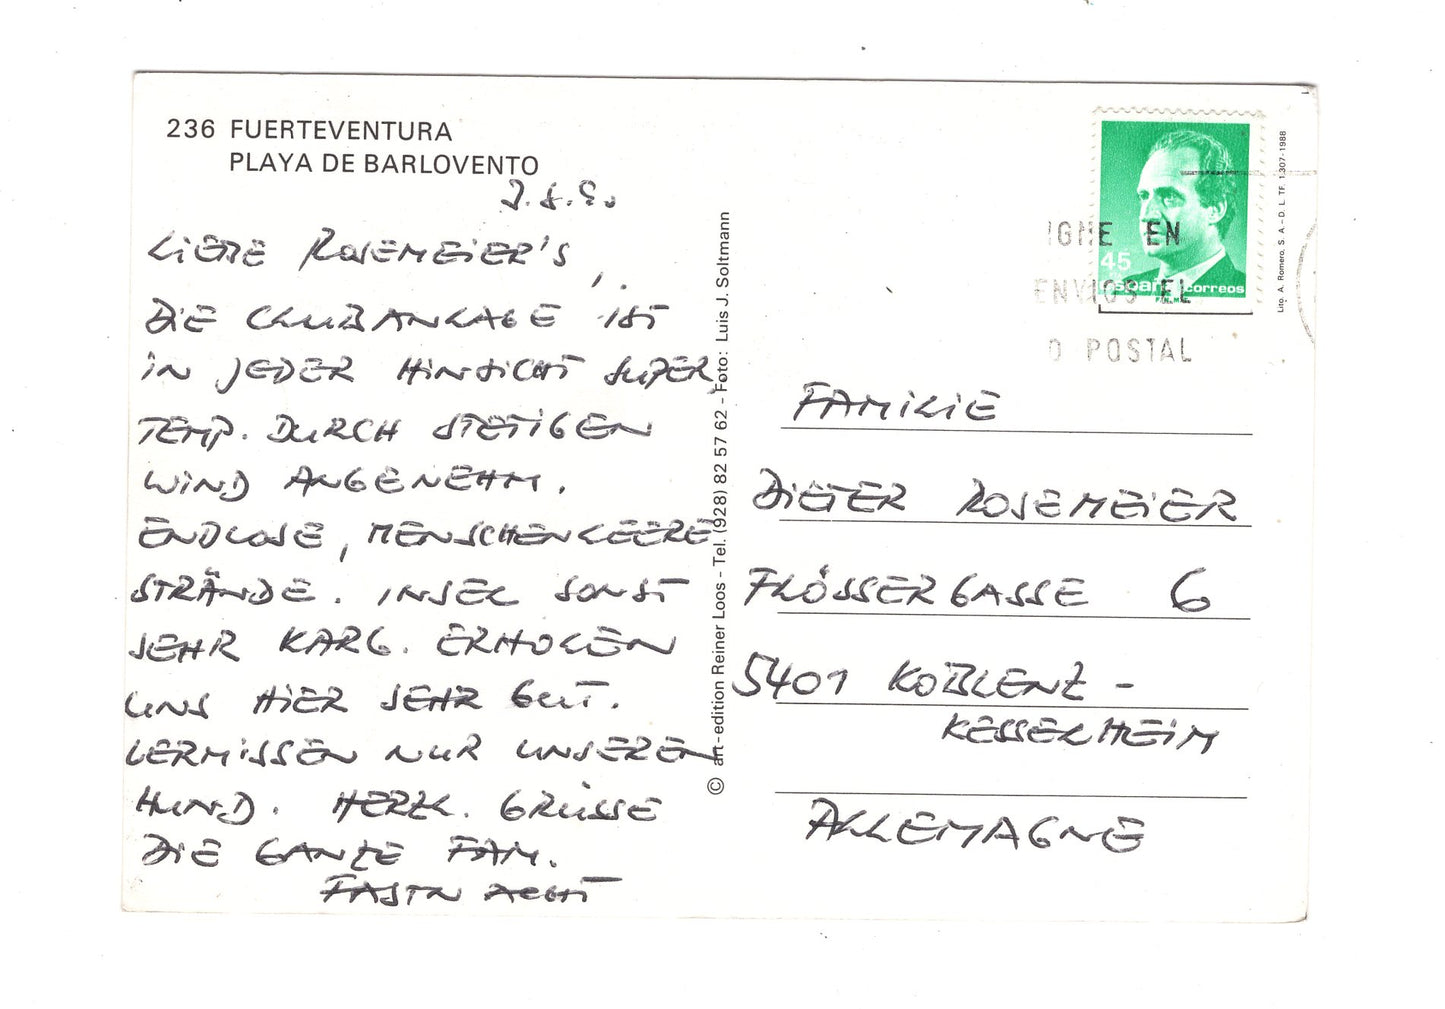 236 FUERTEVENTURA
PLAYA DE BARLOVENTO
LIEBE ROSEMEIER'S,
DIE CLUBANLAGE IST
IN JEDER HINSICHT SUPER,
TEMP. DURCH STETIGEN
WIND ANGENEHM.
ENDLOSE, MENSCHENLEERE
STRÄNDE. INSEL SONST
SEHR KARG. ERHOLEN
UNS HIER SEHR GUT.
VERMISSEN NUR UNSEREN
HUND. HERZL. GRÜSSE
DIE GANZE FAM.
FASTNACHT
© art-edition Reiner Loos - Tel. (928) 82 57 62 - Foto: Luis J. Soltmann
45
España correos
F.N.M.T.
Lito. A. Romero, S. A. - D. L. TF. 1.307-1988
IGNE EN
ENVIOS EL
O POSTAL
FAMILIE
DIETER ROSEMEIER
FLÖSSERGASSE 6
5401 KOBLENZ -
KESSELHEIM
ALLEMAGNE